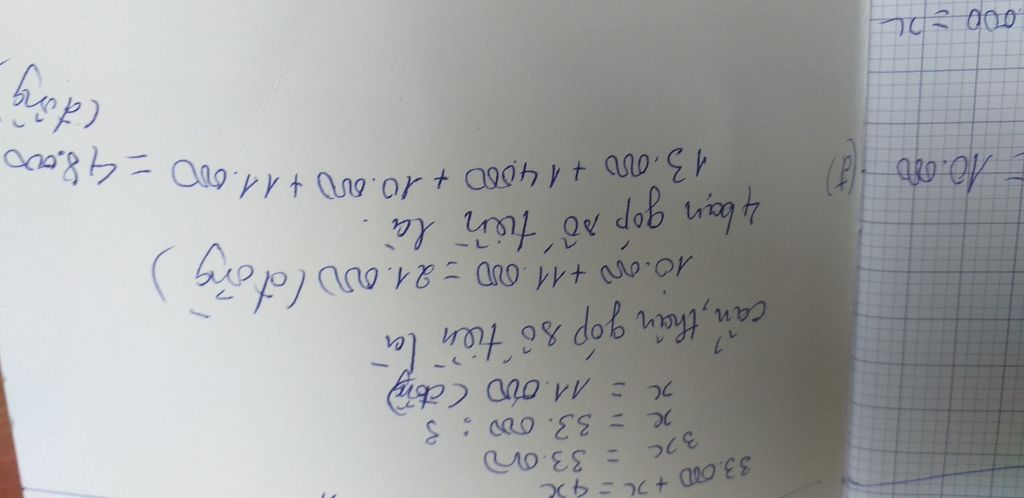 33.000 + x = 4x
3x = 33.000
x = 33.000 : 3
x = 11.000 (đồng)
cẩn, thân góp số tiền là
10.000 + 11.000 = 21.000 (đồng)
4 bạn góp số tiền là.
13.000 + 14000 + 10.000 + 11.000 = 48.000
(đồng)
= 10.000 (đ)
.000 = x